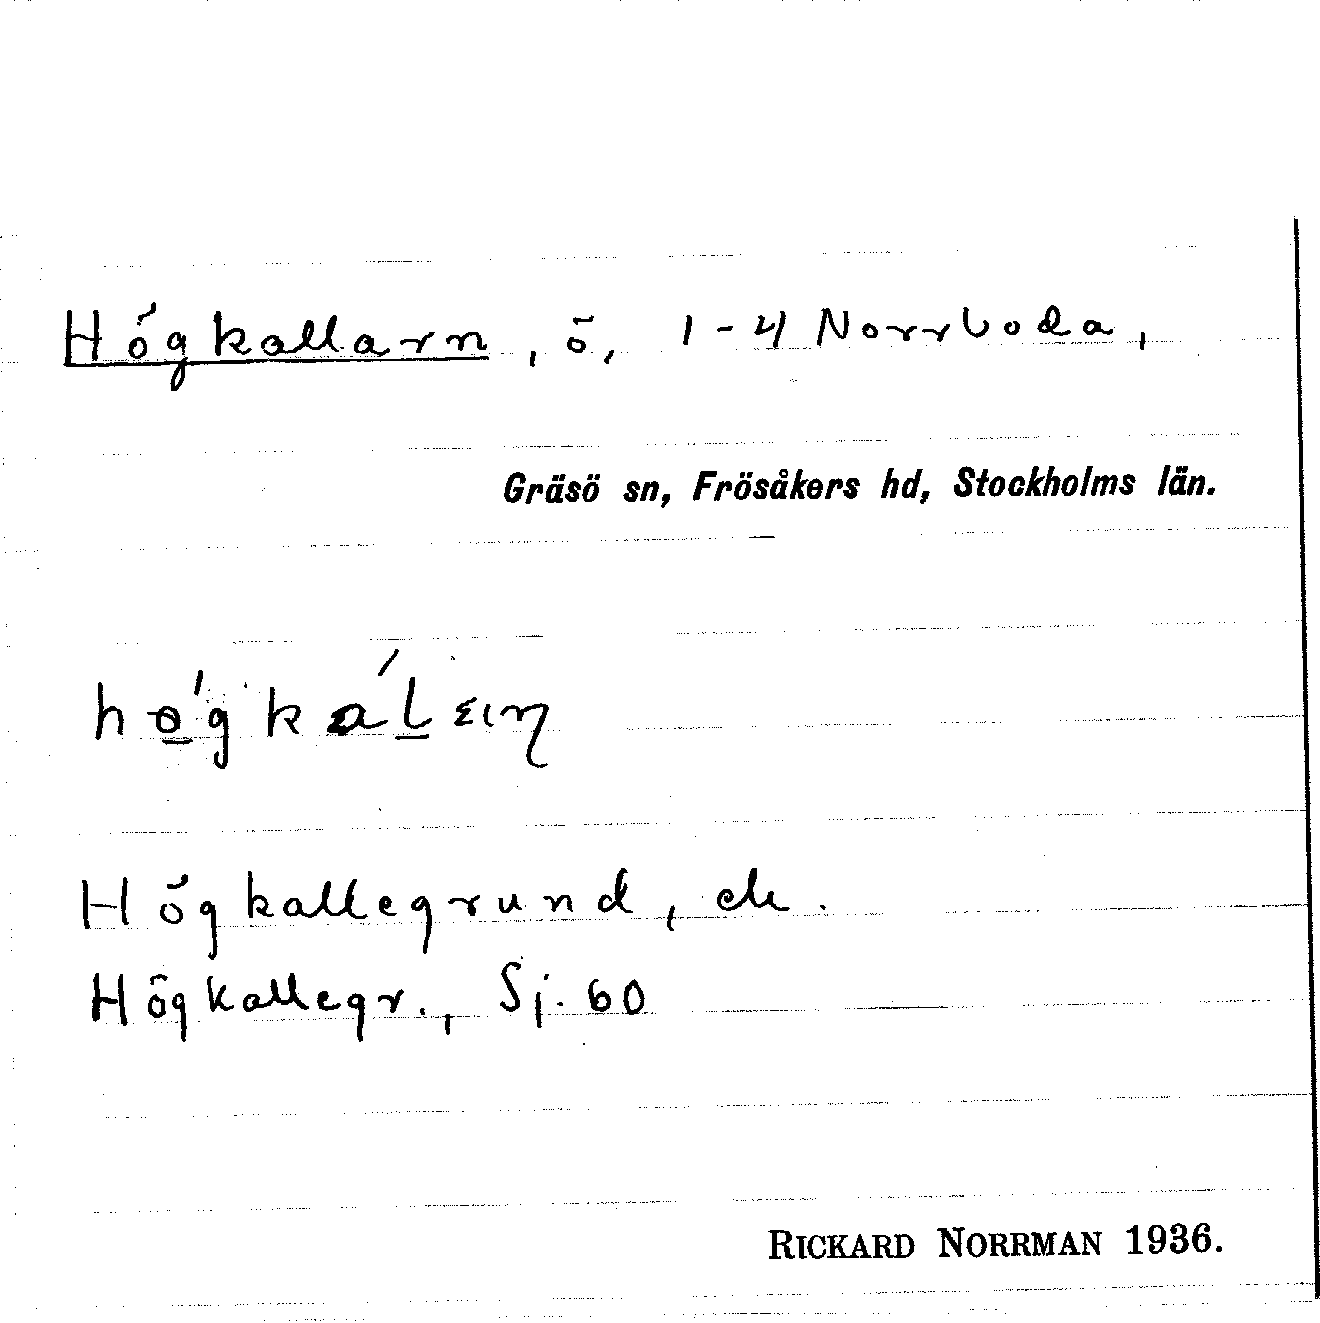 Högkallarn, ö, 1-4 Norrboda,
Gräsö sn, Frösåkers hd, Stockholms län.
Högkallegrund, ek.
Högkallegr., Sj. 60
RICKARD NORRMAN 1936.